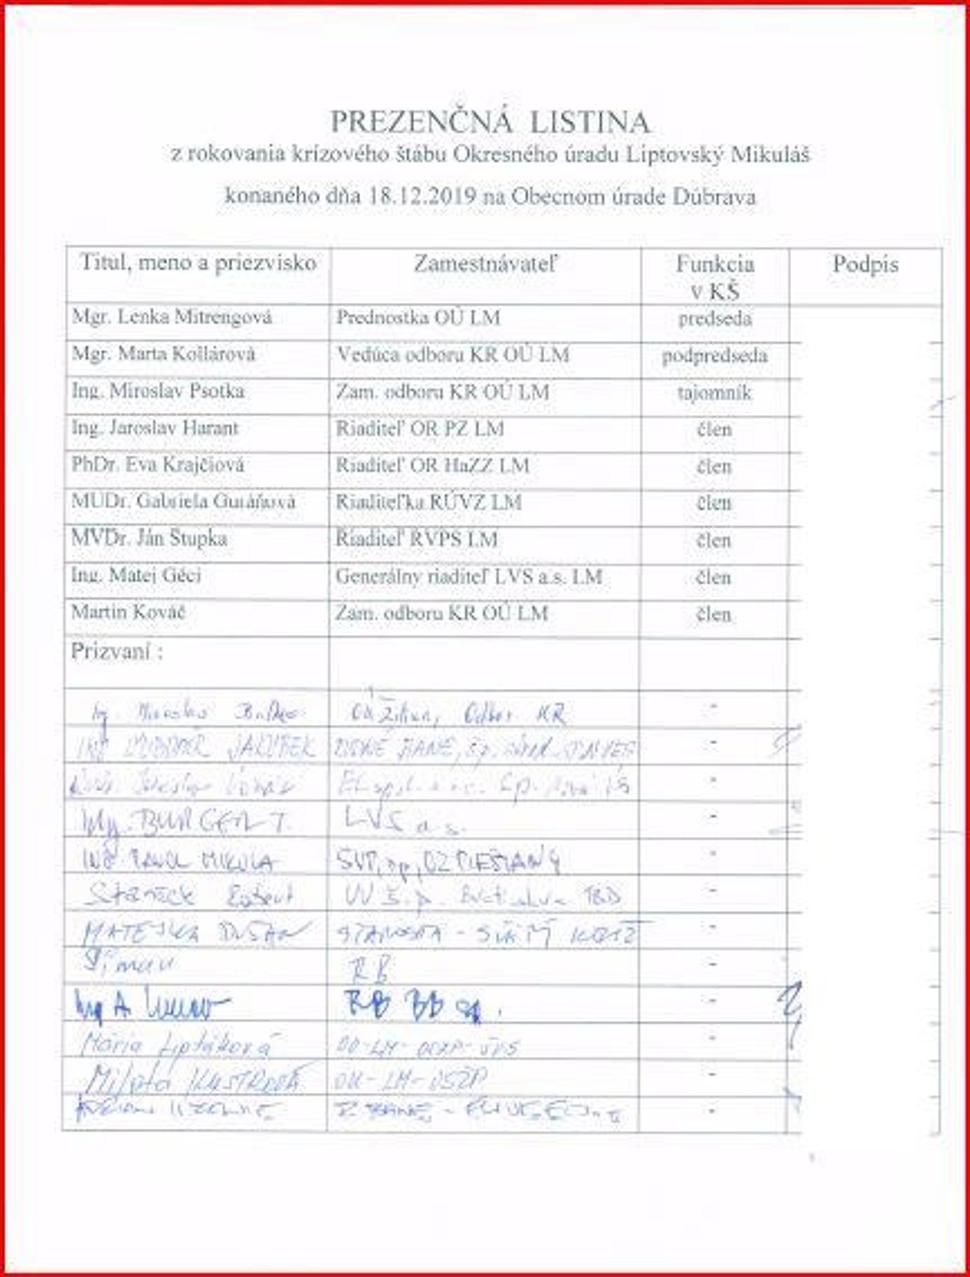 PREZENČNÁ LISTINA
z rokovania krízového štábu Okresného úradu Liptovský Mikuláš
konaného dňa 18.12.2019 na Obecnom úrade Dúbrava
Titul, meno a priezvisko Zamestnávateľ Funkcia v KŠ Podpis
Mgr. Lenka Mitrengová Prednostka OÚ LM predseda
Mgr. Marta Kollárová Vedúca odboru KR OÚ LM podpredseda
Ing. Miroslav Psotka Zam. odboru KR OÚ LM tajomník
Ing. Jaroslav Harant Riaditeľ OR PZ LM člen
PhDr. Eva Krajčiová Riaditeľ OR HaZZ LM člen
MUDr. Gabriela Guráňová Riaditeľka RÚVZ LM člen
MVDr. Ján Stupka Riaditeľ RVPS LM člen
Ing. Matej Géci Generálny riaditeľ LVS a.s. LM člen
Martin Kováč Zam. odboru KR OÚ LM člen
Prizvaní :
Ing. Miroslav OÚ Žilina, Odbor KR -
ING -
-
Ing. LVS a.s. -
ING PAVOL MIKULA SVP, OZ PIEŠŤANY -
Róbert VV š.p. TBD -
MATEJKA DUŠAN STAROSTA - SVÄTÝ KRÍŽ -
Šiman RB -
Ing A RB BB -
Mária Liptáková OU-LM- -
Milota OU-LM-OSZP -
-